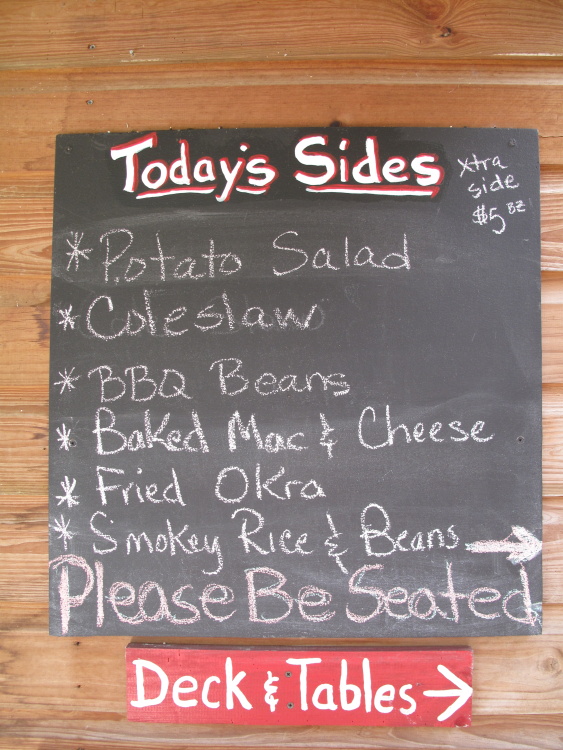 Today's Sides
xtra
side
$5 BZ
* Potato Salad
* Coleslaw
* BBQ Beans
* Baked Mac & Cheese
* Fried Okra
* Smokey Rice & Beans →
Please Be Seated
Deck & Tables →